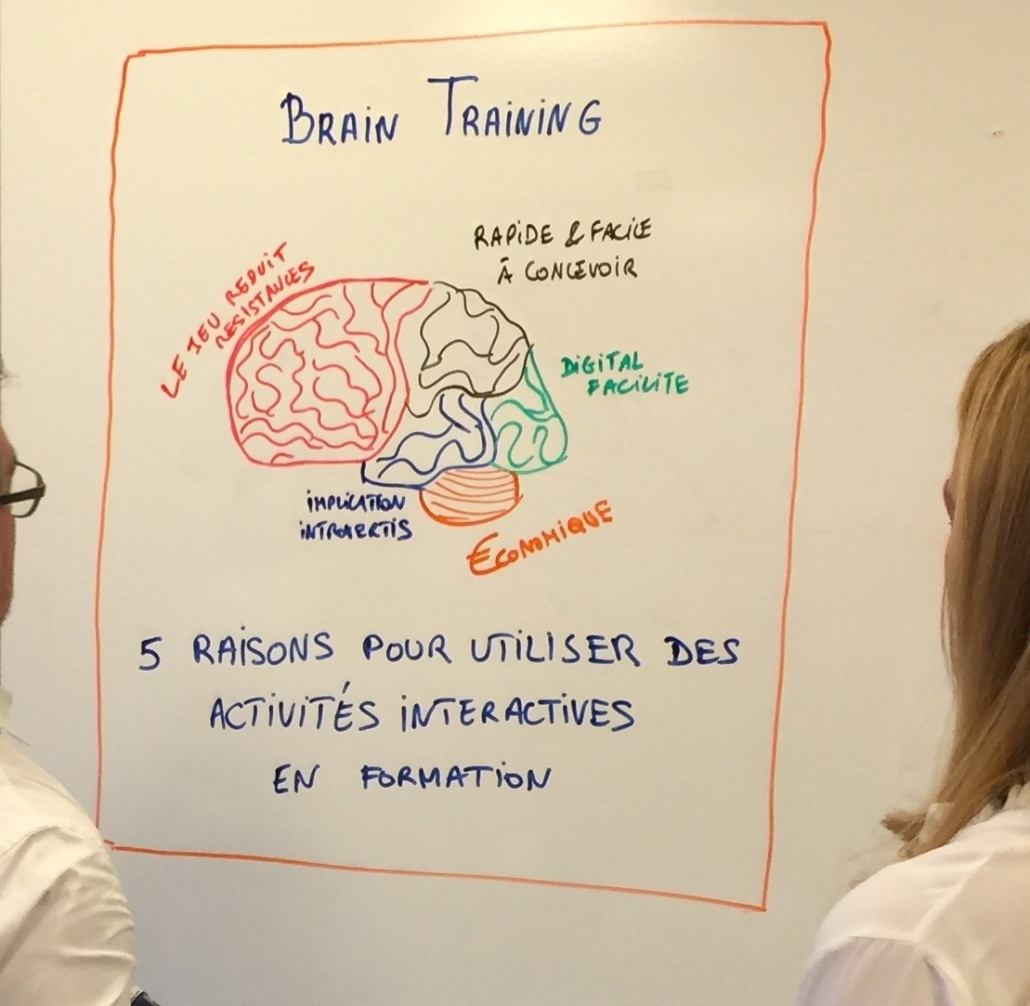 BRAIN TRAINING
RAPIDE & FACILE
À CONCEVOIR
LE JEU REDUIT
RESISTANCES
DIGITAL
FACILITE
IMPLICATION
INTROVERTIS
€CONOMIQUE
5 RAISONS POUR UTILISER DES
ACTIVITÉS INTERACTIVES
EN FORMATION